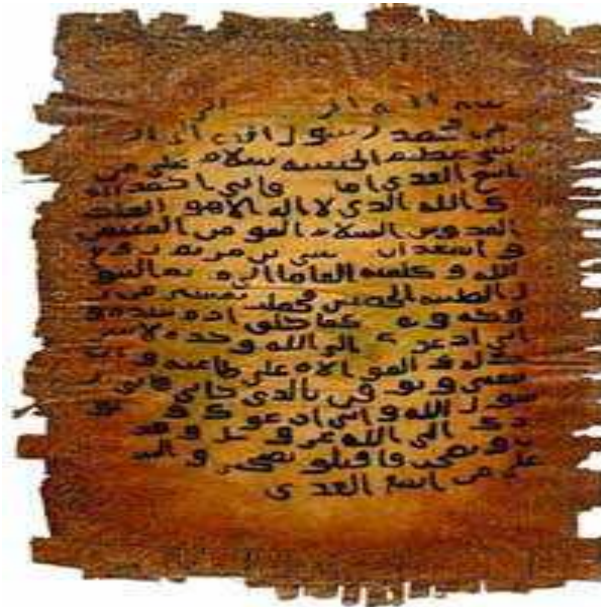 بسم الله الر الر
من محمد رسول الله الى ال
نجسي عظيم الحبشه سلام على من
اتبع الهدى اما فاني احمد اليك
الله الذي لا اله الا هو الملك
القدوس السلام المومن المهيمن
و اشهد ان عيسى بن مريم روح
الله و كلمته القاها الى مريم البتو
ل الطيبه الحصينه فحملت بعيسى من ر
وحه و كما خلق ادم بيده و
اني ادعوك الى الله وحده لا شر
يك له و الموالاه على طاعته و ان
تتبعني و توقن بالذي جاني فاني ر
سول الله و اني ادعوك و جنو
دك الى الله عز و جل و قد
و نصحت فاقبلو نصحي و السلام
على من اتبع الهدى